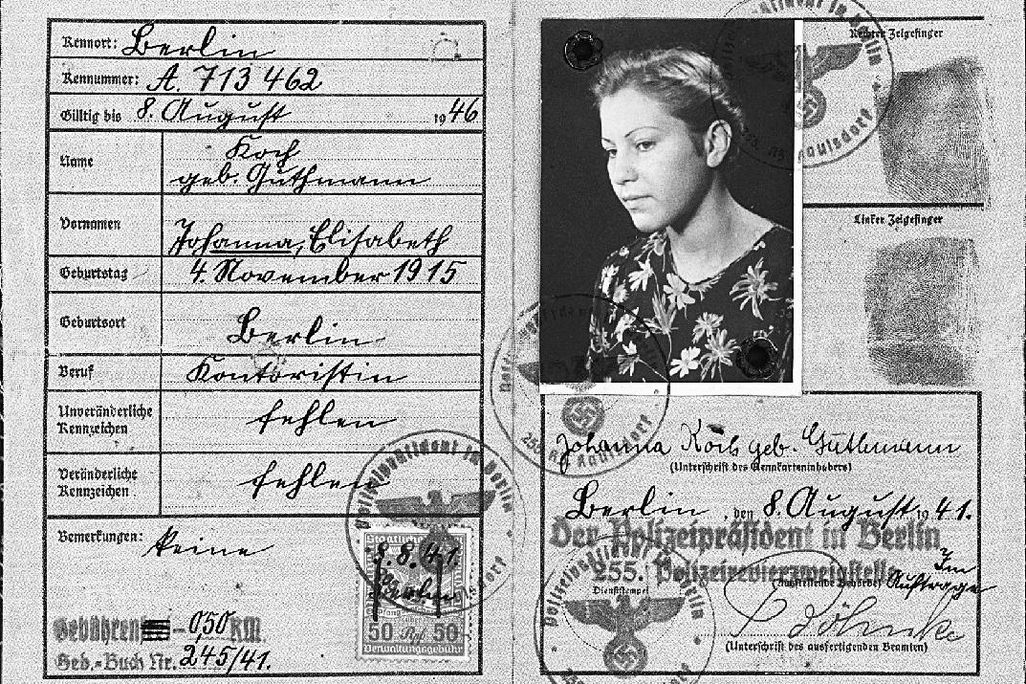 Kennort: Berlin
Kennummer: A. 713 462
Gültig bis 8. August 1946
Name
Koch
geb. Guthmann
Vornamen
Johanna, Elisabeth
Geburtstag
4. November 1915
Geburtsort
Berlin
Beruf
Kontoristin
Unveränderliche
Kennzeichen
fehlen
Veränderliche
Kennzeichen
fehlen
Bemerkungen: keine
Polizeipräsident in Berlin
8.8.41.
Berlin
50 Rpf 50
Verwaltungsgebühr
Gebühren - 0,50 RM
Geb.-Buch Nr. 245/41.
Rechter Zeigefinger
Linker Zeigefinger
Johanna Koch geb. Guthmann
(Unterschrift des Kennkarteninhabers)
Berlin, den 8. August 1941.
Der Polizeipräsident in Berlin
255. Polizeirevierzweigstelle
(Ausstellende Behörde)
Im
Auftrage
Dienststempel
Polizeipräsident in Berlin
Böhnke
(Unterschrift des ausfertigenden Beamten)